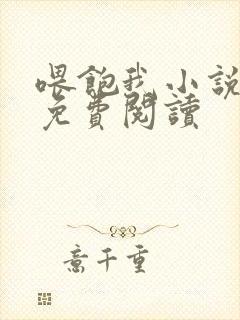 喂飽我小說
免費閱讀
意千重